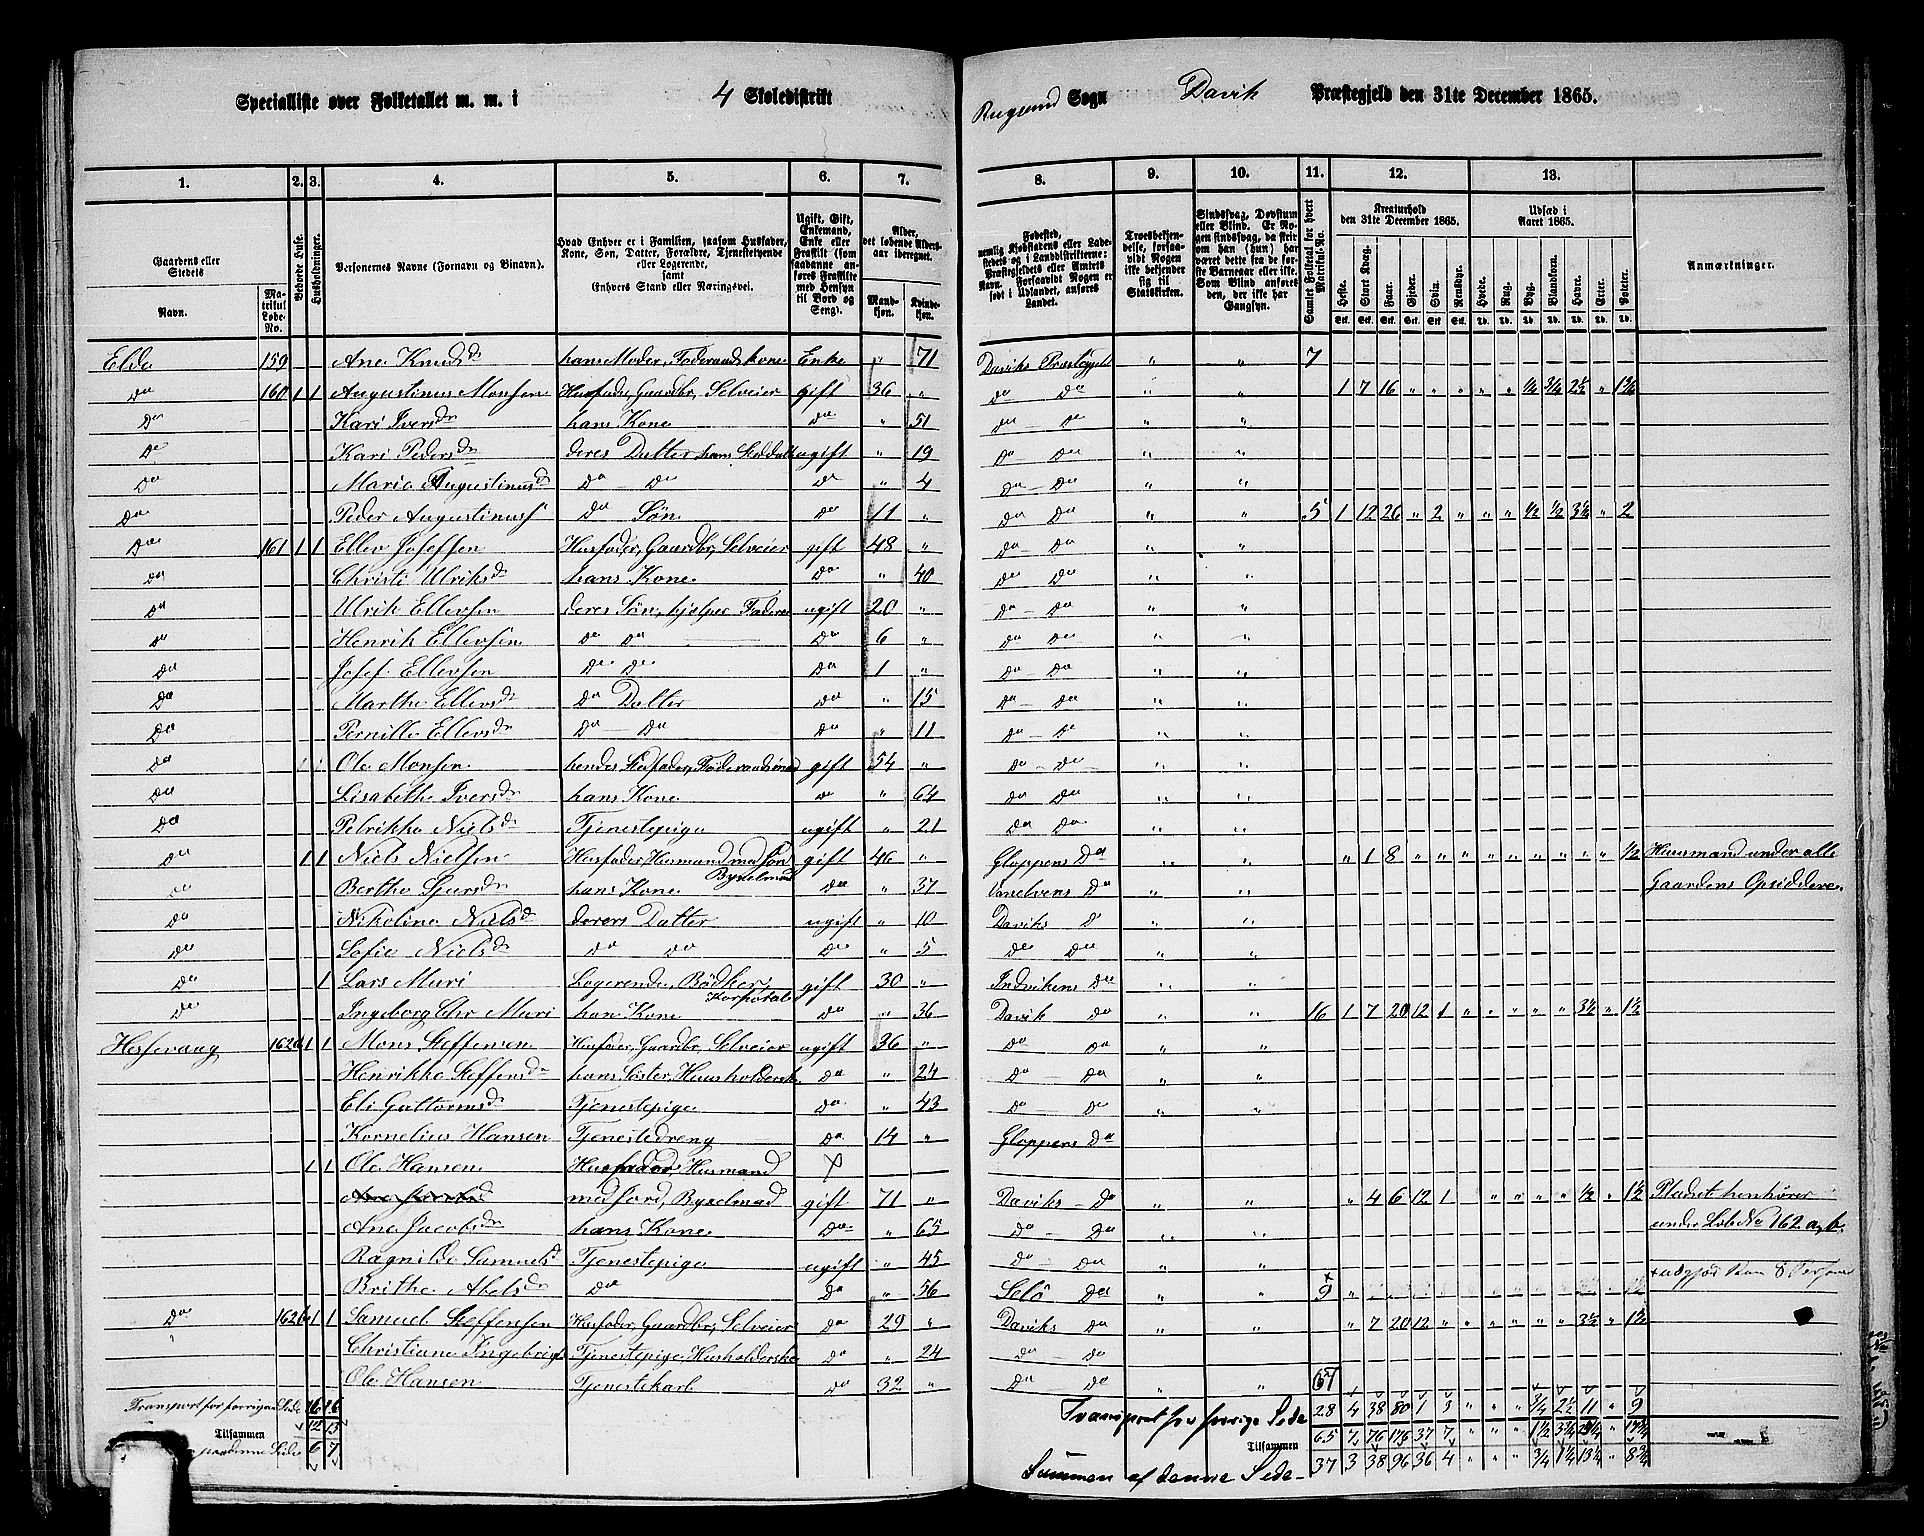 Specialliste over Folketallet m. m. i 4 Skoledistrikt Rugsund Sogn Davik Præstegjeld den 31te December 1865.
1. 2. 3. 4. 5. 6. 7. 8. 9. 10. 11. 12. 13.
Gaardens eller Stedets
Navn.
Matrikul Løbe-No.
Beboede Huse.
Husholdninger.
Personernes Navne (Fornavn og Binavn).
Hvad Enhver er i Familien, saasom Husfader, Kone, Søn, Datter, Forældre, Tjenestetyende eller Logerende, samt Enhvers Stand eller Næringsvei.
Ugift, Gift, Enkemand, Enke eller Fraskilt (som saadanne anføres Fraskilte med Hensyn til Bord og Seng).
Alder, det løbende Aldersaar iberegnet.
Mandkjøn. Kvindekjøn.
Fødested, nemlig Kjøbstadens eller Ladestedets og i Landdistrikterne: Præstegjeldets eller Amtets Navn. Forsaavidt Nogen er født i Udlandet, anføres Landet.
Troesbekjendelse, forsaavidt Nogen ikke bekjender sig til Statskirken.
Samlet Folketal for hvert Matrikul-No.
Kreaturhold den 31te December 1865.
Heste. Stort Kvæg. Faar. Gjeder. Svin. Rensdyr.
Udsæd i Aaret 1865.
Hvede. Rug. Byg. Blandkorn. Havre. Erter. Poteter.
Anmærkninger.
Elde 159 Ane Knudsdr hans Moder, Føderaadskone Enke " 71 Daviks Præstegjeld " " 7
Do 160 1 1 Augustinus Monsen Husfader, Gaardbr, Selveier gift 36 " Do Do " " 1 7 16 " " " " " 1/4 3/4 2 1/2 " 1 3/4
Do Kari Iversdr hans Kone Do " 51 Do Do " "
Do Kari Pedersdr deres Datter ugift " 19 Do Do " "
Do Marie Augustinusdr Do Do Do " 4 Do Do " "
Do Peder Augustinuss Do Søn Do 11 " Do Do " " 5 1 12 26 " 2 " " " 1/2 1/2 3 1/2 " 2
Do 161 1 1 Ellev Josefsen Husfader, Gaardbr, Selveier gift 48 " Do Do " "
Do Christi Ulriksdr hans Kone Do " 40 Do Do " "
Do Ulrik Ellevsen deres Søn, hjelper Faderen ugift 20 " Do Do " "
Do Henrik Ellevsen Do Do Do 6 " Do Do " "
Do Josef Ellevsen Do Do Do 1 " Do Do " "
Do Marthe Ellevsdr Do Datter Do " 15 Do Do " "
Do Pernille Ellevsdr Do Do Do " 11 Do Do " "
Do 1 1 Ole Monsen hendes Stiffader, Føderaadsmand gift 54 " Do Do " "
Do Lisabethe Iversdr hans Kone Do " 64 Do Do " "
Do Petrikke Nielsdr Tjenestepige ugift " 21 Do Do " "
Do 1 1 Niels Nielsen Husfader, Husmand med Jord gift 46 " Gloppens Do " " " 1 8 " " " " " " " " " 1/2 Huusmand under alle
Bygselmand
Do Berthe Sjursdr hans Kone Do " 37 Vanelvens Do " " Gaardens Opsiddere
Do Nikoline Nielsdr deres Datter ugift " 10 Daviks Do " "
Do Sofie Nielsdr Do Do Do " 5 Do Do " "
Do 1 Lars Muri Logerende, Bødker, gift 30 " Indvikens Do " "
Korporal
Do Ingeborg Chr Muri hans Kone Do " 36 Davik Do " " 16 1 7 20 12 1 " " " " " 3 1/2 " 1 1/2
Hessevaag 162a 1 1 Mons Steffensen Husfader, Gaardbr, Selveier ugift 36 " Do Do " "
Henrikke Steffensdr hans Søster, Huusholderske Do " 24 Do Do " "
Eli Guttormsdr Tjenestepige Do " 43 Do Do " "
Kornelius Hansen Tjenestedreng Do 14 " Gloppens Do
1 1 Ole Hansen Husfader, Husmand
med Jord, Bygselmad gift 71 " Daviks Do " " " 4 6 12 1 " " " " " 1/2 " 1 1/2 Pladset henhører
Ane Jacobsdr hans Kone Do " 65 Do Do " " under Løb No 162 a, b.
Ragnilde Samuelsd Tjenestepige ugift " 45 Do Do " "
Brithe Abelsdr Do Do " 56 Selø Do " " 9
Do 162b 1 1 Samuel Steffensen Husfader, Gaardbr, Selveier Do 29 " Daviks Do " " " 7 20 12 " " " " " " 3 1/2 " 1 1/2
Christiane Ingebrigtsd Tjenestepige, Husholderske Do " 24 Do Do
Ole Hansen Tjenestekarl Do 32 " Do Do " "
Transport for forrige Side 6 6 Transport for forrige Side 28 4 38 80 1 3 " " " 3/4 2 1/2 11 " 9
Tilsammen 12 13 Tilsammen 65 7 76 176 37 7
6 7 Summen af denne Side 37 3 38 96 36 4 " " " 3/4 1 1/4 13 1/2 " 8 3/4